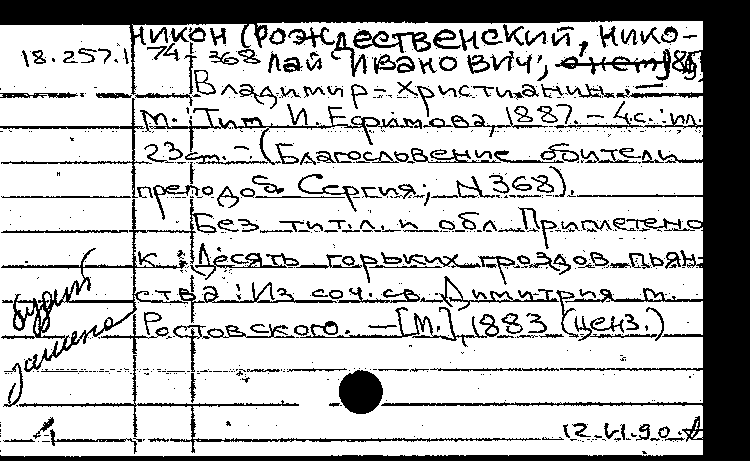 НИКОН (РОЖДЕСТВЕНСКИЙ, НИКО-
18.257.1 74-368 ЛАЙ ИВАНОВИЧ,
Владимир-христианин. —
М.: Тип. И. Ефимова, 1887. – 4с.: ил.
23см. – (Благословение обители
преподоб Сергия; N368).
Без тит.л. и обл. Приплетено
к: Десять горьких гроздов пьян-
ства: Из соч. св. Димитрия м.
Ростовского. – [М.], 1883 (ценз.)
будет
замена
1
12.VI.90.